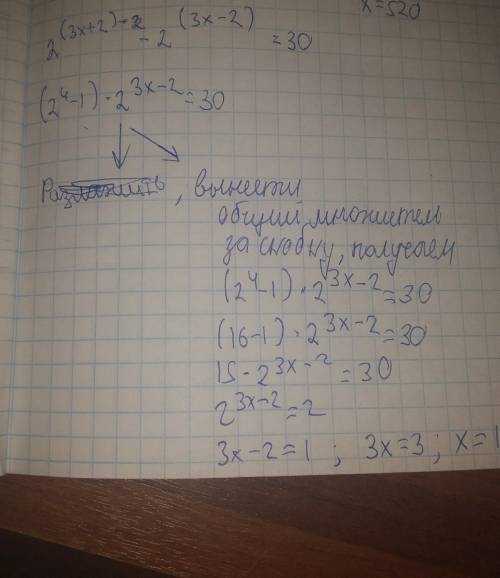 x=520
2^(3x+2) - 2^(3x-2) = 30
(2^4-1) · 2^3x-2 = 30
Разложить, вынести
общий множитель
за скобку, получаем
(2^4-1) · 2^3x-2 = 30
(16-1) · 2^3x-2 = 30
15 · 2^3x-2 = 30
2^3x-2 = 2
3x-2=1 ; 3x=3 ; x=1